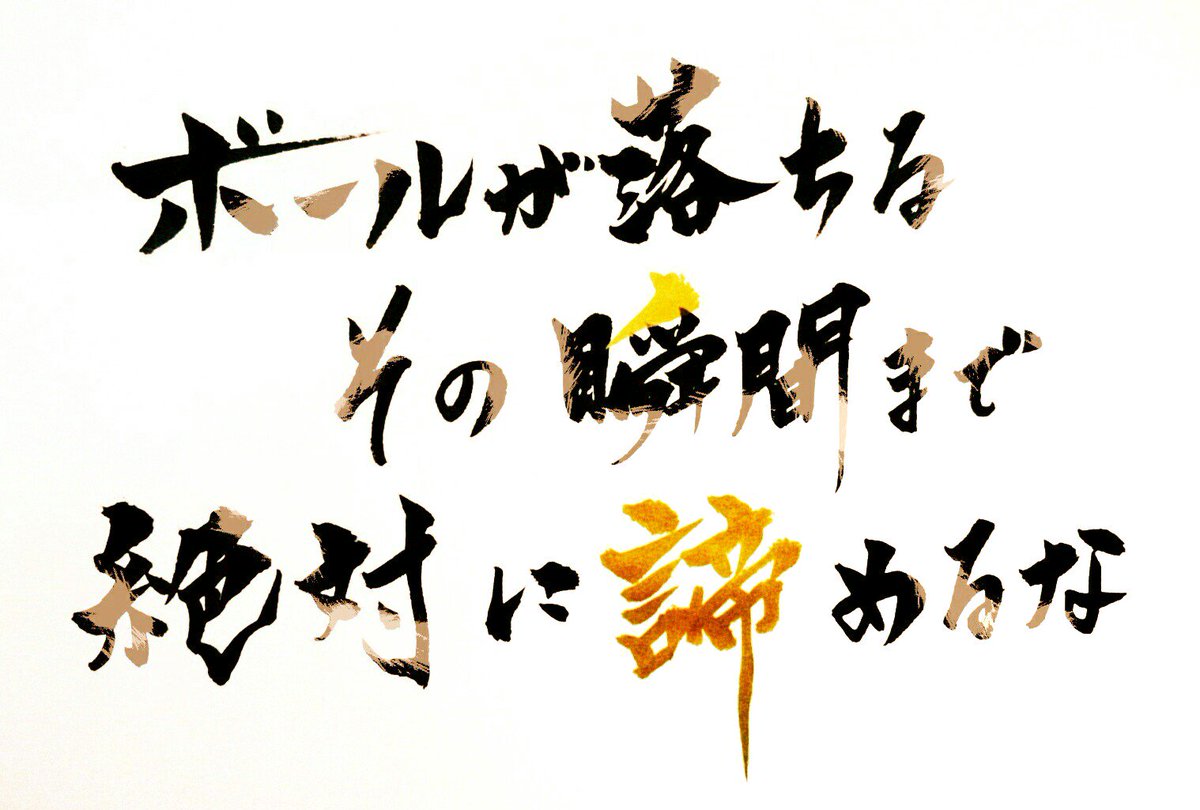 ボールが落ちる
その瞬間まで
絶対に諦めるな